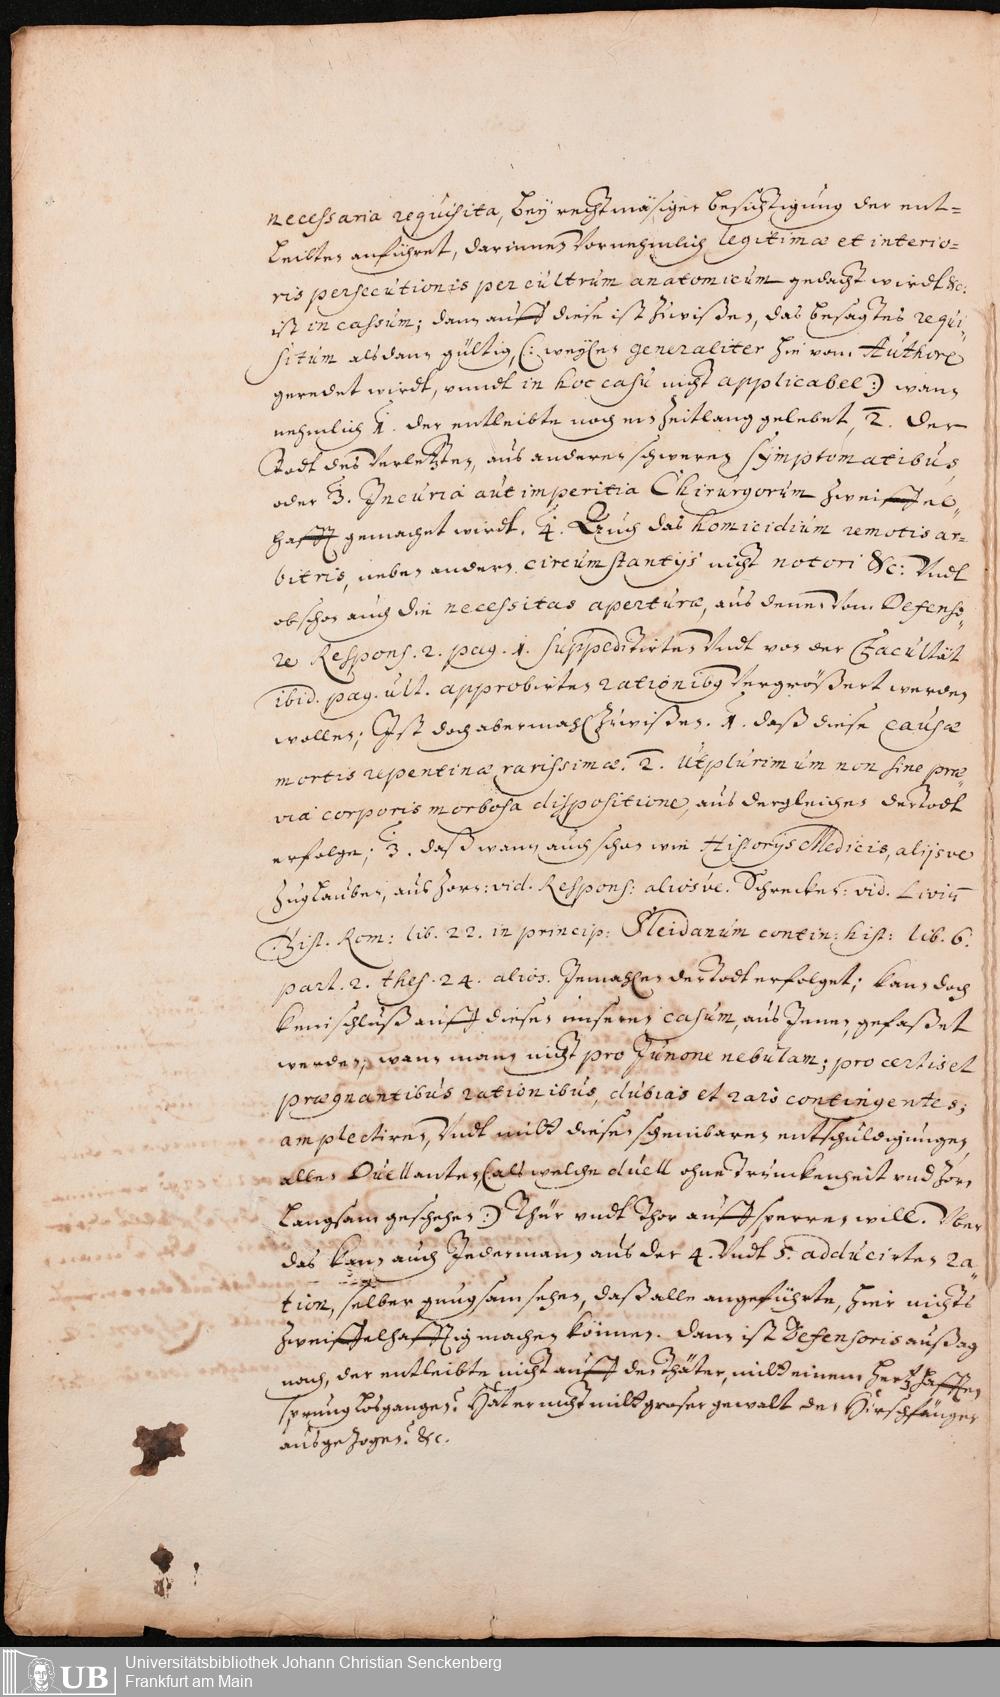 necessaria requisita, bey rechtmäsiger besichtigung der ent=
leibten anführet, darinnen vornehmlich legitimæ et interio=
ris persecutionis per cultrum anatomicum gedacht wirdt &c:
ist in cassum; dann auff diese ist zuwißen, das besagtes requi=
situm alsdann gültig, (: weylen generaliter hie vom Authore
geredet wirdt, vnndt in hoc casu nicht applicabel :) wann
nehmlich 1. der entleibte noch ein Zeitlang gelebet, 2. der
Todt des Verletzten, aus anderen schweren symptomatibus
oder 3. Incuria aut imperitia Chirurgorum zweiffel=
hafft gemachet wirdt. 4. Auch das homicidium remotis ar=
bitris, neben andern circumstantijs nicht notori &c: Vndt
obschon auch die necessitas aperturæ, aus denen vom Defenso=
re Respons. 2. pag. 1. suppeditirten Vndt von der Facultät
ibid. pag. ult. approbirten rationibq Vergrößert werden
wollen; Ist doch abermahl zuwißen. 1. daß diese causæ
mortis repentinæ rarissimæ. 2. Utplurimum non sine præ=
via corporis morbosa dispositione, aus dergleichen der Todt
erfolge; 3. daß wann auch schon wie Historijs Medicis, alijsve
zuglauben, aus Zorn: vid. Respons: aliosve. Schrecken: vid. Liviq
Hist. Rom: lib. 22. in princip: Sleidanum contin: hist: lib. 6.
part. 2. thes. 24. alios. Jemahlen der Todt erfolget; kann doch
kein schluß auff diesen unseren casum, aus Jenen, gefaßet
werden, wann mann nicht pro Junone nebulam; pro certis et
prægnantibus rationibus, dubias et raro contingentes;
amplectiren, Vndt mitt diesen scheinbaren entschuldigungen
allen Duellanten, (als welche duell ohne trunckenheit vnd Zorn
langsam geschehen :) Thür vndt Thor auffsperren will. Vber
das kann auch Jedermann aus der 4. Vndt 5. adducirten ra=
tion, selber gnugsam sehen, daß alle angeführte, hier nichts
zweiffelhafftig machen können. dann ist Defensoris außag
nach, der entleibte nicht auff den thäter, mitt einem hertzhafften
sprung losgangen? Hat er nicht mitt groser gewalt den Hirschfänger
ausgezogen? &c.
Universitätsbibliothek Johann Christian Senckenberg
Frankfurt am Main
UB